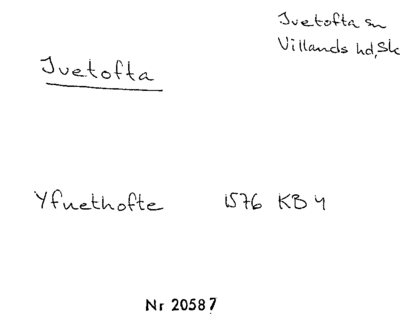 Ivetofta sn
Villands hd, Sk
Ivetofta
Yfuethofte 1576 KB 4
Nr 20587